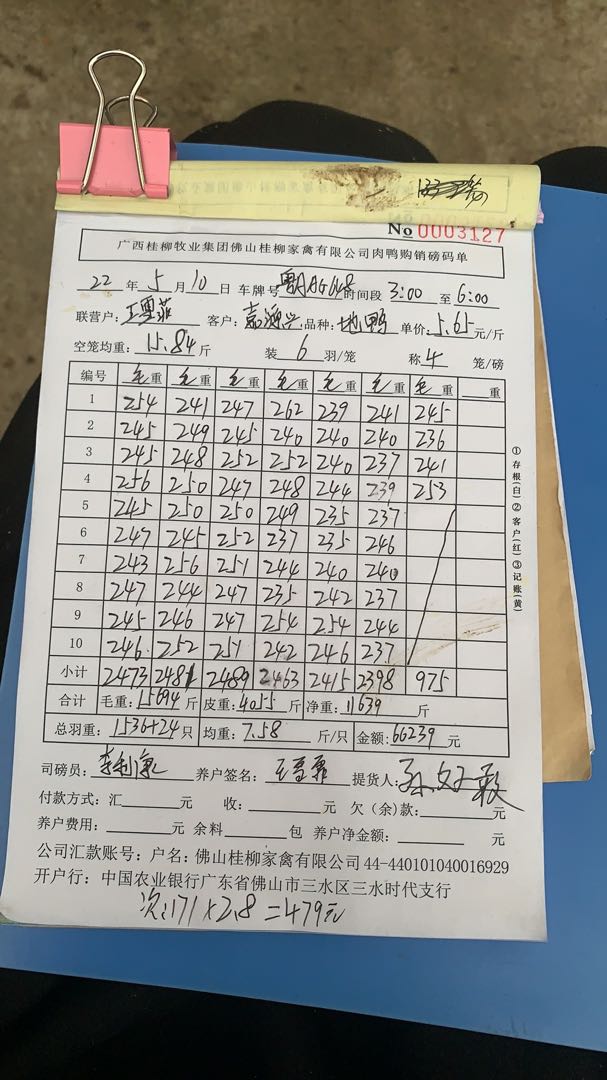 No 0003127
广西桂柳牧业集团佛山桂柳家禽有限公司肉鸭购销磅码单
22 年 5 月 10 日 车牌号 粤AG648 时间段 3:00 至 6:00
联营户: 王雪菲 客户: 嘉源兴 品种: 地鸭 单价: 5.65 元/斤
空笼均重: 15.84 斤 装 6 羽/笼 称 4 笼/磅
编号 毛重 毛重 毛重 毛重 毛重 毛重 毛重 重
1 254 241 247 262 239 241 245
2 245 249 245 240 240 240 236
3 245 248 252 252 240 237 241
4 256 250 247 248 244 239 253
5 245 250 250 249 235 237
6 247 245 252 237 235 246
7 243 256 251 244 240 240
8 247 244 247 235 242 237
9 245 246 247 254 254 244
10 246 252 251 242 246 237
小计 2473 2481 2489 2463 2415 2398 975
合计 毛重: 15694 斤 皮重: 4055 斤 净重: 11639 斤
总羽重: 1536+24 只 均重: 7.58 斤/只 金额: 66239 元
司磅员: 李利康 养户签名: 王雪菲 提货人:
付款方式: 汇 元 收: 元 欠(余)款: 元
养户费用: 元 余料 包 养户净金额: 元
公司汇款账号: 户名: 佛山桂柳家禽有限公司 44-440101040016929
开户行: 中国农业银行广东省佛山市三水区三水时代支行
次: 171×2.8=479元
①存根(白)②客户(红)③记账(黄)